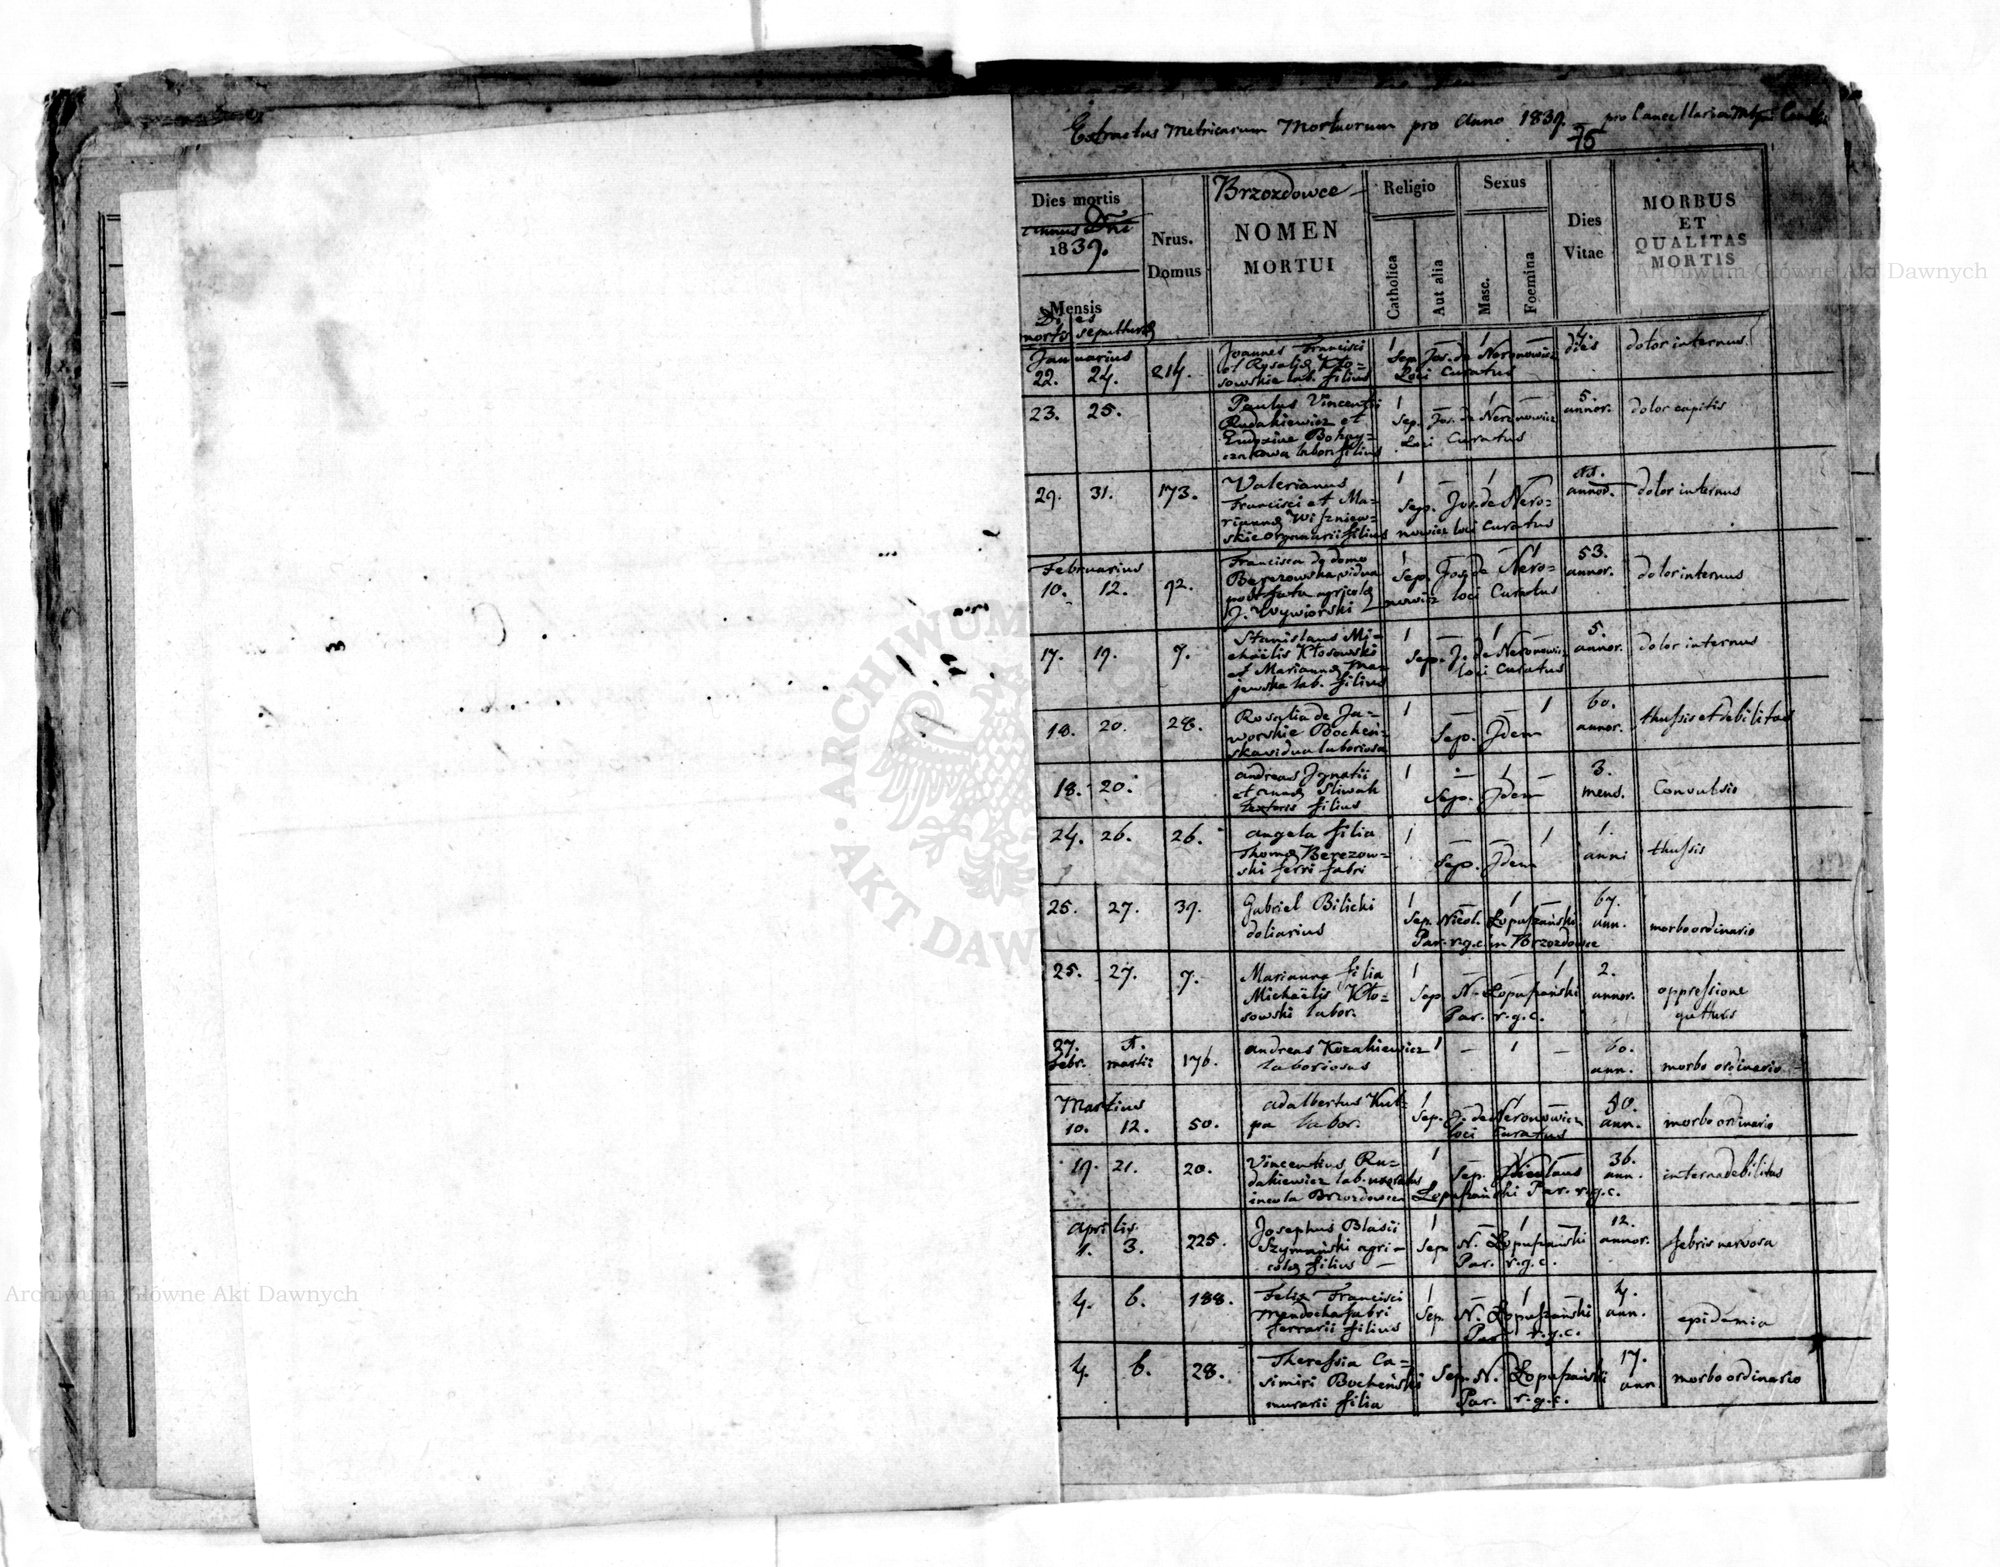 Extractus Metricarum Mortuorum pro Anno 1839. pro Cancellaria
75
Dies mortis
Annus Dni
1839.
Mensis
Dies
mortis sepulturæ
Nrus.
Domus
Brzozdowce
NOMEN
MORTUI
Religio
Catholica
Aut alia
Sexus
Masc.
Foemina
Dies
Vitae
MORBUS
ET
QUALITAS
MORTIS
Januarius
22. 24. 214.
Joannes Francisci
et Rosaliæ Kło=
sowskie lab. filius
1 — 1 —
Sep. Jos. de Neronowicz
Loci Curatus
4.
dies
dolor internus.
23. 25.
Paulus Vincentii
Rudakiewicz et
labor. filius
1 — 1 —
Sep. Jos. de Neronowicz
Loci Curatus
5.
annor.
dolor capitis
29. 31. 173.
Valerianus
Francisci et Ma=
riannæ Wiszniew=
skie filius
1 — 1 —
Sep. Jos. de Nero=
nowicz loci Curatus
annor.
dolor internus
Februarius
10. 12. 92.
Francisca de domo
Berezowska vidua
post agricolæ
J. Wywiorski
1 — — 1
Sep. Jos. de Nero=
nowicz loci Curatus
53.
annor.
dolor internus
17. 19. 7.
Stanislaus Mi=
chaëlis Kłosowski
et Mariannæ Ma=
jewska lab. filius
1 — 1 —
Sep. J. de Neronowicz
loci Curatus
5.
annor.
dolor internus
18. 20. 28.
Rosalia de Ja=
worskie Bocheń=
ska vidua laboriosa
1 — — 1
Sep. Idem
60.
annor.
thussis et debilitas
18. 20.
Andreas Ignatii
et Annæ Sliwak
textoris filius
1 — 1 —
Sep. Idem
3.
mens.
Convulsio
24. 26. 26.
Angela filia
Thomæ Berezow=
ski ferri fabri
1 — — 1
Sep. Idem
1.
anni
thussis
25. 27. 39.
Gabriel Bilicki
doliarius
1 — 1 —
Sep. Nicol. Łopuszański
Par. r.g.c. in Brzozdowce
67.
ann.
morbo ordinario
25. 27. 7.
Marianna filia
Michaëlis Kło=
sowski labor.
1 — — 1
Sep. N. Łopuszański
Par. r.g.c.
2.
annor.
oppressione
gutturis
27. 1.
Febr. martii 176.
Andreas Kozakiewicz
laboriosus
1 — 1 —
60.
ann.
morbo ordinario
Martius
10. 12. 50.
Adalbertus Kul=
pa labor.
1 — 1 —
Sep. J. de Neronowicz
loci Curatus
ann.
morbo ordinario
19. 21. 20.
Vincentius Ru=
dakiewicz lab. uxoratus
incola Brzozdovien
1 — 1 —
Sep. Nicolaus
Łopuszański Par. r.g.c.
36.
ann.
interna debilitas
Aprilis
1. 3. 225.
Josephus Blasii
Szymański agri=
colæ filius —
1 — 1 —
Sep. N. Łopuszański
Par. r.g.c.
12.
annor.
febris nervosa
4. 6. 188.
Felix Francisci
Mendocha fabri
ferrarii filius
1 — 1 —
Sep. N. Łopuszański
Par. r.g.c.
4.
ann.
epidemia
4. 6. 28.
Theressia Ca=
simiri Bocheński
murarii filia
Sep. N. Łopuszański
Par. r.g.c.
17.
ann.
morbo ordinario
Archiwum Główne Akt Dawnych
Archiwum Główne Akt Dawnych